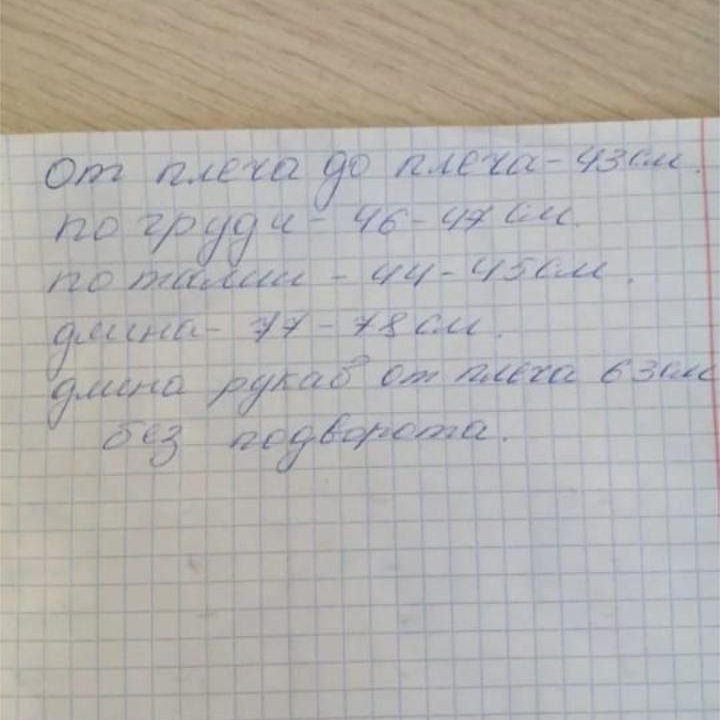 От плеча до плеча - 43 см.
по груди - 46-47 см.
по талии - 44-45 см.
длина - 77-78 см.
длина рукав от плеча 63 см
без подворота.